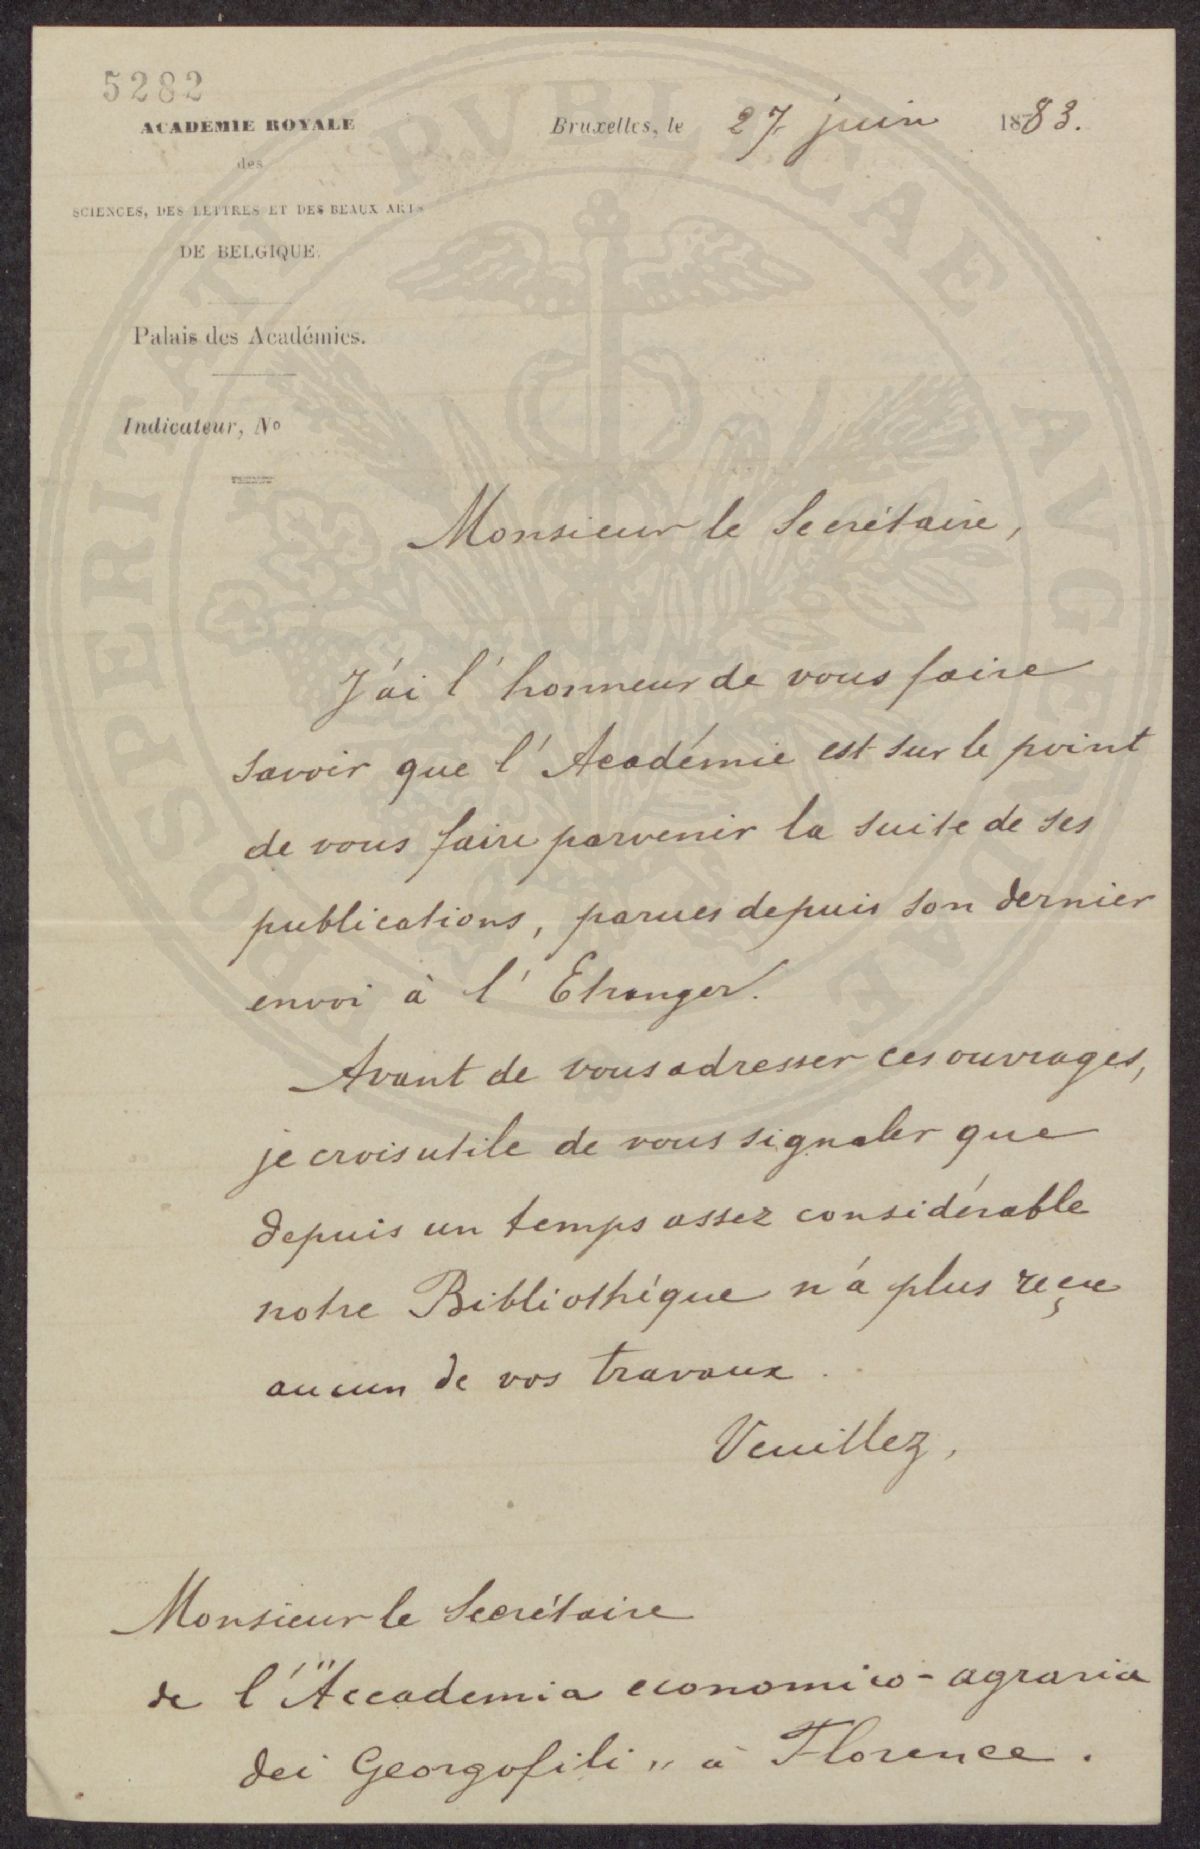 5282
ACADEMIE ROYALE
des
SCIENCES, DES LETTRES ET DES BEAUX ARTS
DE BELGIQUE.
Palais des Académies.
Indicateur, No
Bruxelles, le 27 juin 1883.
Monsieur le Secrétaire,
J'ai l'honneur de vous faire
savoir que l'Académie est sur le point
de vous faire parvenir la suite de ses
publications, parues depuis son dernier
envoi à l'Etranger.
Avant de vous adresser ces ouvrages,
je crois utile de vous signaler que
depuis un temps assez considérable
notre Bibliothèque n'a plus reçu
aucun de vos travaux.
Veuillez,
Monsieur le Secrétaire
de l'"Accademia economico-agraria
dei Georgofili" à Florence.
PROSPERITATI PVBLICAE AVGENDAE